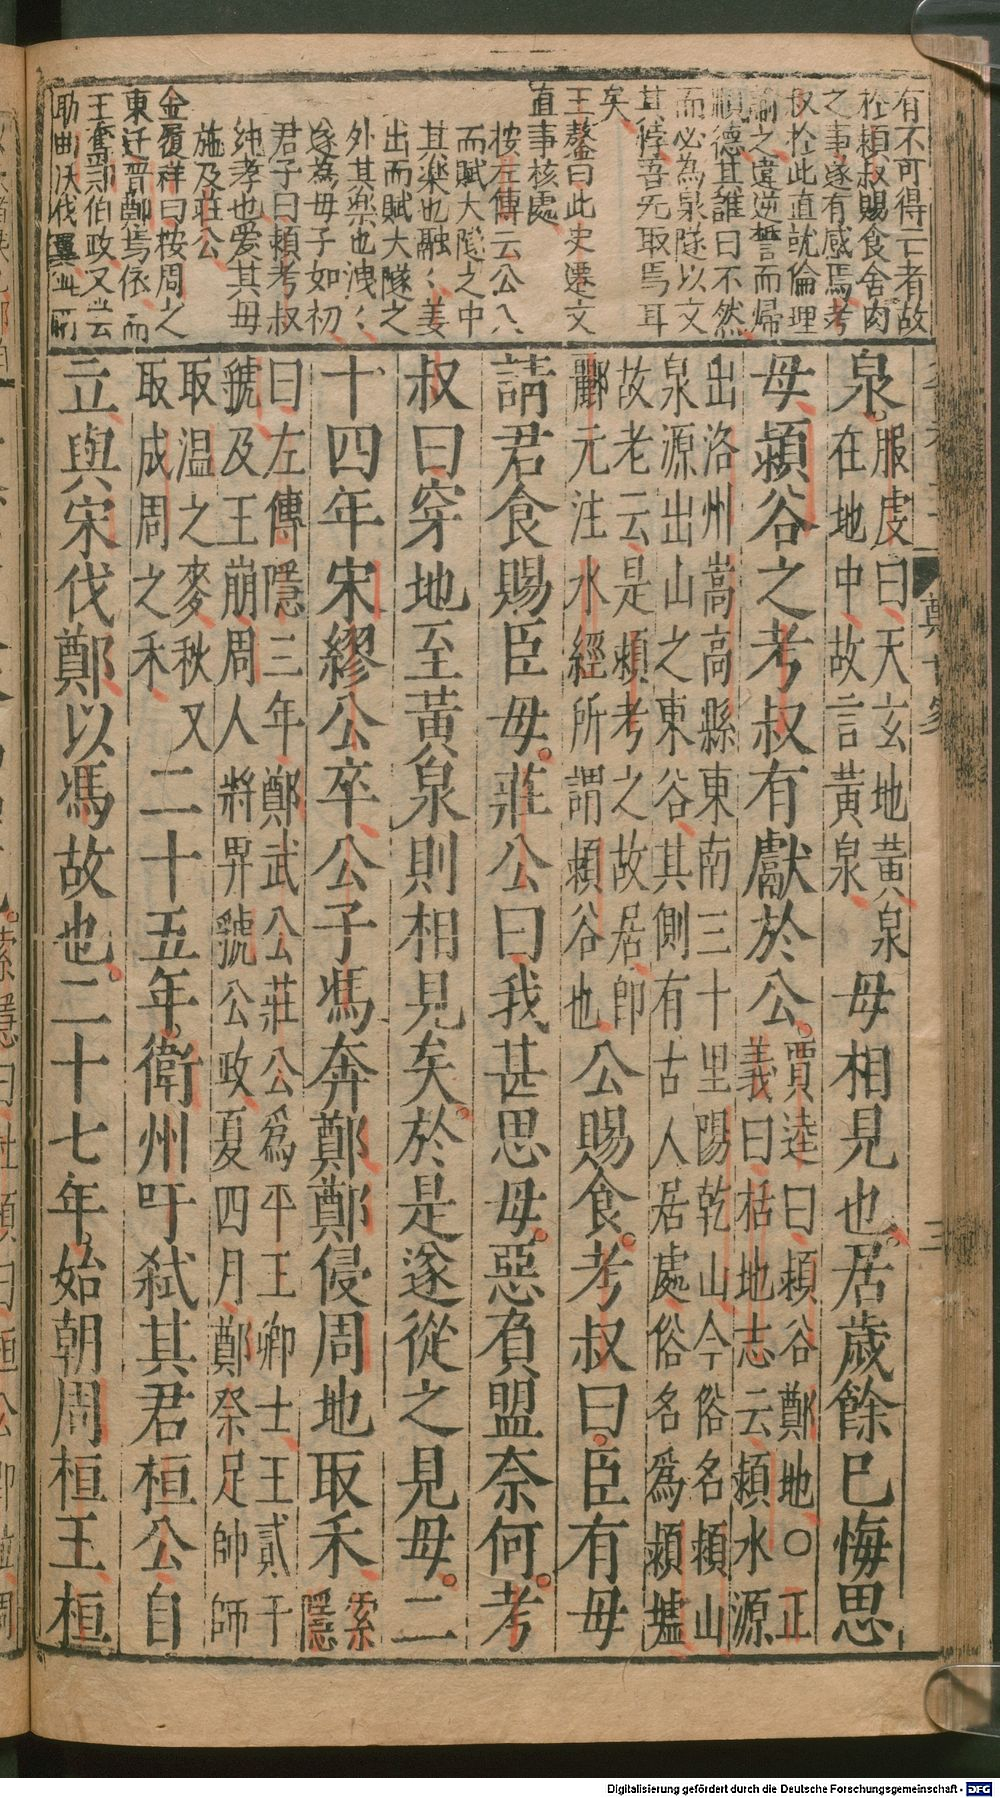 有不可得二者故
於穎叔賜食舍肉
之事遂有感焉考
叔於此直就倫理
諭之違逆誓而歸
順德其誰曰不然
而必為泉隧以文
其悖吾无取焉耳
矣
王鏊曰此史遷文
直事核處
按左傳云公入
而賦大隧之中
其樂也融〻姜
出而賦大隧之
外其樂也洩〻
遂為毋子如初
君子曰穎考叔
純孝也爱其毋
施及莊公
金履祥曰桉周之
東迁晋鄭焉依而
王奪鄭伯政又
助曲沃伐翼
泉。服虔曰天玄地黃泉
在地中故言黃泉
毋相見也。居歲餘巳悔思
毋潁谷之考叔有獻於公。賈逵曰潁谷鄭地○正
義曰括地志云潁水源
出洛州嵩高縣東南三十里陽乾山今俗名潁山
泉源出山之東谷其側有古人居處俗名為潁墟
故老云是潁考之故居即
酈元注水經所謂潁谷也
公賜食。考叔曰。臣有毋
請君食賜臣毋。莊公曰我甚思毋。惡負盟奈何。考
叔曰穿地至黃泉則相見矣。於是遂從之見毋。二
十四年宋繆公卒公子馮奔鄭鄭侵周地取禾索
隱
曰左傳隱三年鄭武公莊公為平王卿士王貳于
虢及王崩周人將畀虢公政夏四月鄭祭足帥師
取温之麥秋又
取成周之禾
二十五年。衛州吁弒其君桓公自
立與宋伐鄭以馮故也。二十七年。始朝周桓王桓
鄭世家
三
Digitalisierung gefördert durch die Deutsche Forschungsgemeinschaft - DFG